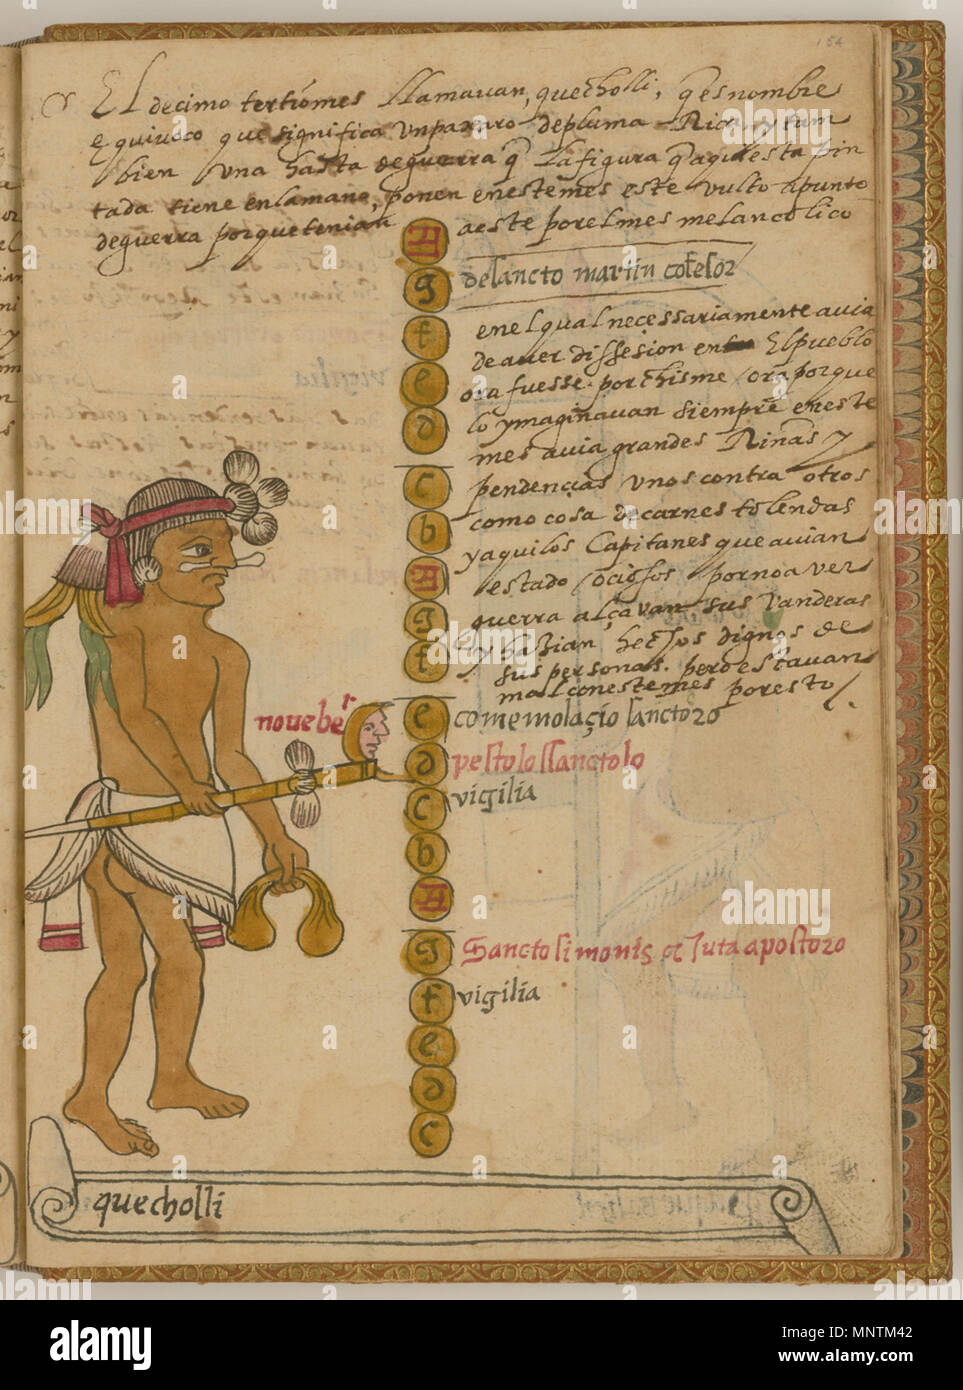 154
El decimo tertio mes llamavan, quecholli, q̃ es nombre
equivoco que significa un paxaro de pluma Rica, y tam
bien una hasta de guerra q̃ la figura q̃ aqui esta pin
tada tiene en la mano, ponen en este mes este vulto apunto
de guerra porque tenian
a este por el mes melancolico
A
g
de sancto martin cõfesor
f
e
d
c
b
A
g
f
en el qual necessariamente avia
de aver dissesion en El pueblo
ora fuesse por chisme / ora porque
lo ymaginavan siempre en este
mes avia grandes Riñas y
pendencias unos contra otros
como cosa de carnes tolendas
y aquilos Capitanes que avian
estado ociosos por no aver
guerra alçavan sus vanderas
y hazian hechos dignos de
sus personas. pero estavan
mal con este mes por esto /.
novebeʳ
e
comemolaçio sanctoro
d
pestolo ssanctolo
c
vigilia
b
A
g
Sancto simonis et Juta apostoro
f
vigilia
e
d
c
quecholli
alamy
Image ID: MNTM42
www.alamy.com